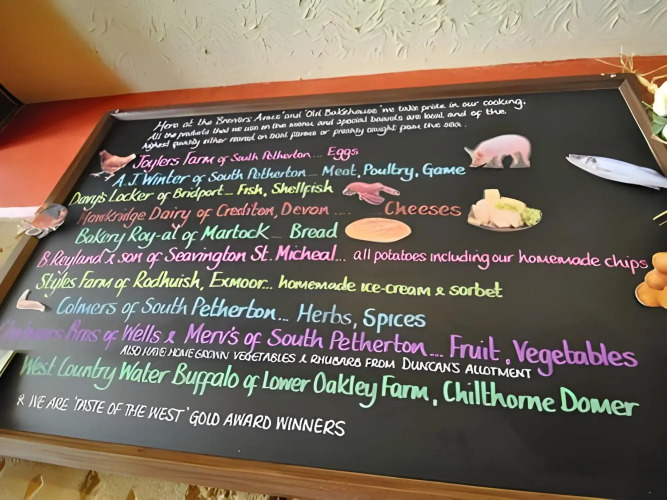 Here at the Brewers Arms and 'Old Bakehouse' we take pride in our cooking.
All the products that we use in the menus and special boards are local and of the
highest quality either reared on local farms or freshly caught from the sea.
Joylers Farm of South Petherton... Eggs
A.J. Winter of South Petherton... Meat, Poultry, Game
Davy's Locker of Bridport... Fish, Shellfish
Hawkridge Dairy of Crediton, Devon ..... Cheeses
Bakery Roy-al of Martock... Bread
B Reyland & son of Seavington St. Micheal... all potatoes including our homemade chips
Styles Farm of Rodhuish, Exmoor... homemade ice-cream & sorbet
Colmers of South Petherton... Herbs, Spices
Bros of Wells & Merv's of South Petherton.... Fruit, Vegetables
ALSO HAVE HOME GROWN VEGETABLES & RHUBARB FROM DUNCAN'S ALLOTMENT
West Country Water Buffalo of Lower Oakley Farm, Chilthorne Domer
& WE ARE 'TASTE OF THE WEST' GOLD AWARD WINNERS